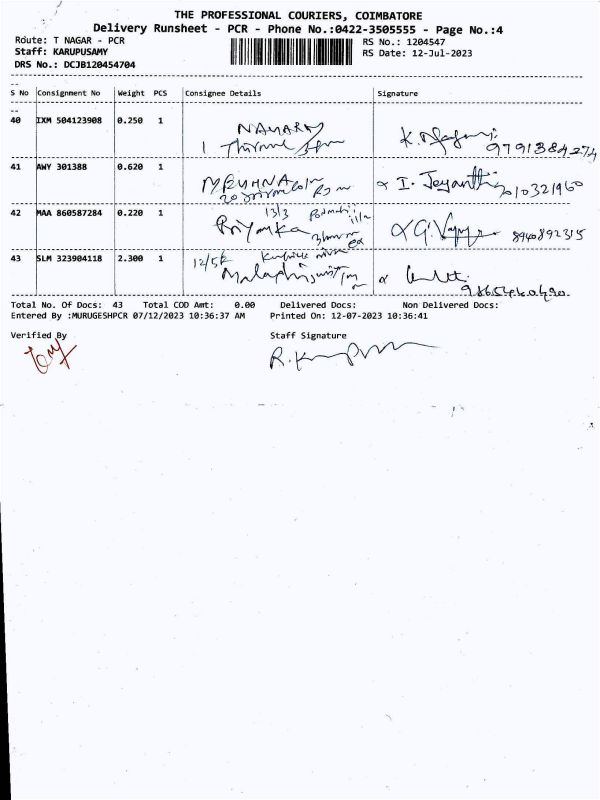 THE PROFESSIONAL COURIERS, COIMBATORE
Delivery Runsheet - PCR - Phone No.:0422-3505555 - Page No.:4
Route: T NAGAR - PCR
RS No.: 1204547
Staff: KARUPUSAMY
RS Date: 12-Jul-2023
DRS No.: DCJB120454704
S No Consignment No Weight PCS Consignee Details Signature
40 IXM 504123908 0.250 1
K.
9791384274
41 AWY 301388 0.620 1
I. Jeyanthi
42 MAA 860587284 0.220 1
13/3
Priyanka
G.
8940892315
43 SLM 323904118 2.300 1
12/5
Total No. Of Docs: 43 Total COD Amt: 0.00 Delivered Docs: Non Delivered Docs:
Entered By :MURUGESHPCR 07/12/2023 10:36:37 AM Printed On: 12-07-2023 10:36:41
Verified By Staff Signature